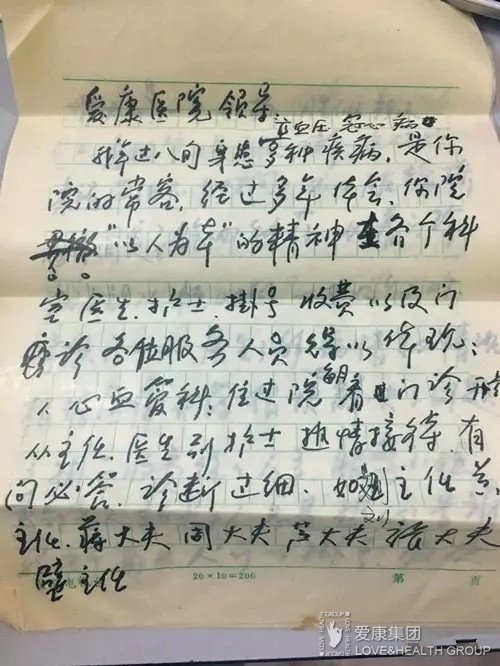 爱康医院领导
高血压、冠心病
我年过八旬身患多种疾病,是你
院的常客,经过多年体会,你院
"以人为本"的精神 各个科
室医生、护士、挂号 收费以及门
诊各位服务人员得以体现:
1 心血管科:住过院 看 门诊 开
从主任、医生到护士热情接待,有
问必答,诊断过细,如刘主任、黄
主任、蒋大夫 周大夫 芦大夫 大夫
主任
20×10=200
第 页
爱康集团
LOVE&HEALTH GROUP